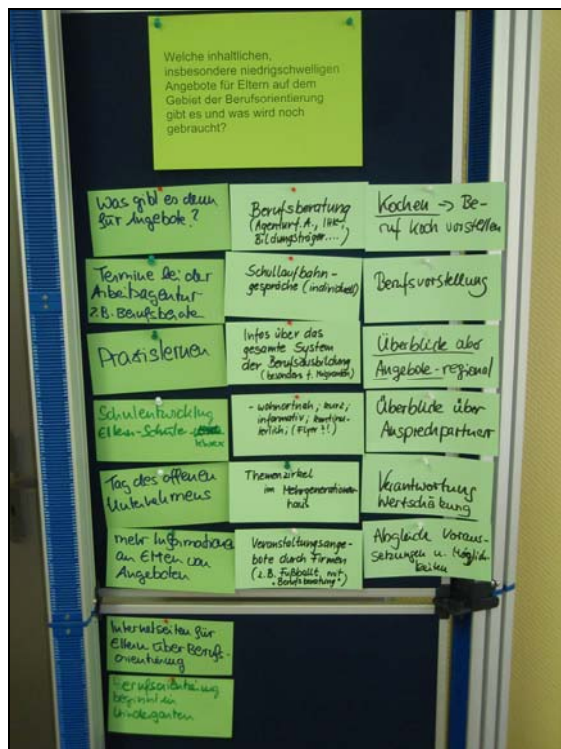 Welche inhaltlichen,
insbesondere niedrigschwelligen
Angebote für Eltern auf dem
Gebiet der Berufsorientierung
gibt es und was wird noch
gebraucht?
Was gibt es denn
für Angebote?
Termine bei der
Arbeitsagentur
z.B. Berufsberater
Praxislernen
Schulentwicklung
Eltern-Schule-
Tag des offenen
Unternehmens
mehr Informationen
an Eltern von
Angeboten
Internetseiten für
Eltern über Berufs-
orientierung
Berufsorientierung
beginnt im
Kindergarten
Berufsberatung
(Agentur f. A., IHK,
Bildungsträger....)
Schullaufbahn-
gespräche (individuell)
Infos über das
gesamte System
der Berufsausbildung
(besonders f. Migranten)
- wohnortnah, kurz,
informativ, kontinu-
ierlich, (Flyer!!)
Themenzirkel
im Mehrgenerationen
haus
Veranstaltungsange-
bote durch Firmen
(z.B. Fußballt. mit
"Berufsberatung")
Kochen → Be-
ruf Koch vorstellen
Berufsvorstellung
Überblick über
Angebote - regional
Überblick über
Ansprechpartner
Verantwortung
Wertschätzung
Abgleich Voraus-
setzungen u. Möglich-
keiten